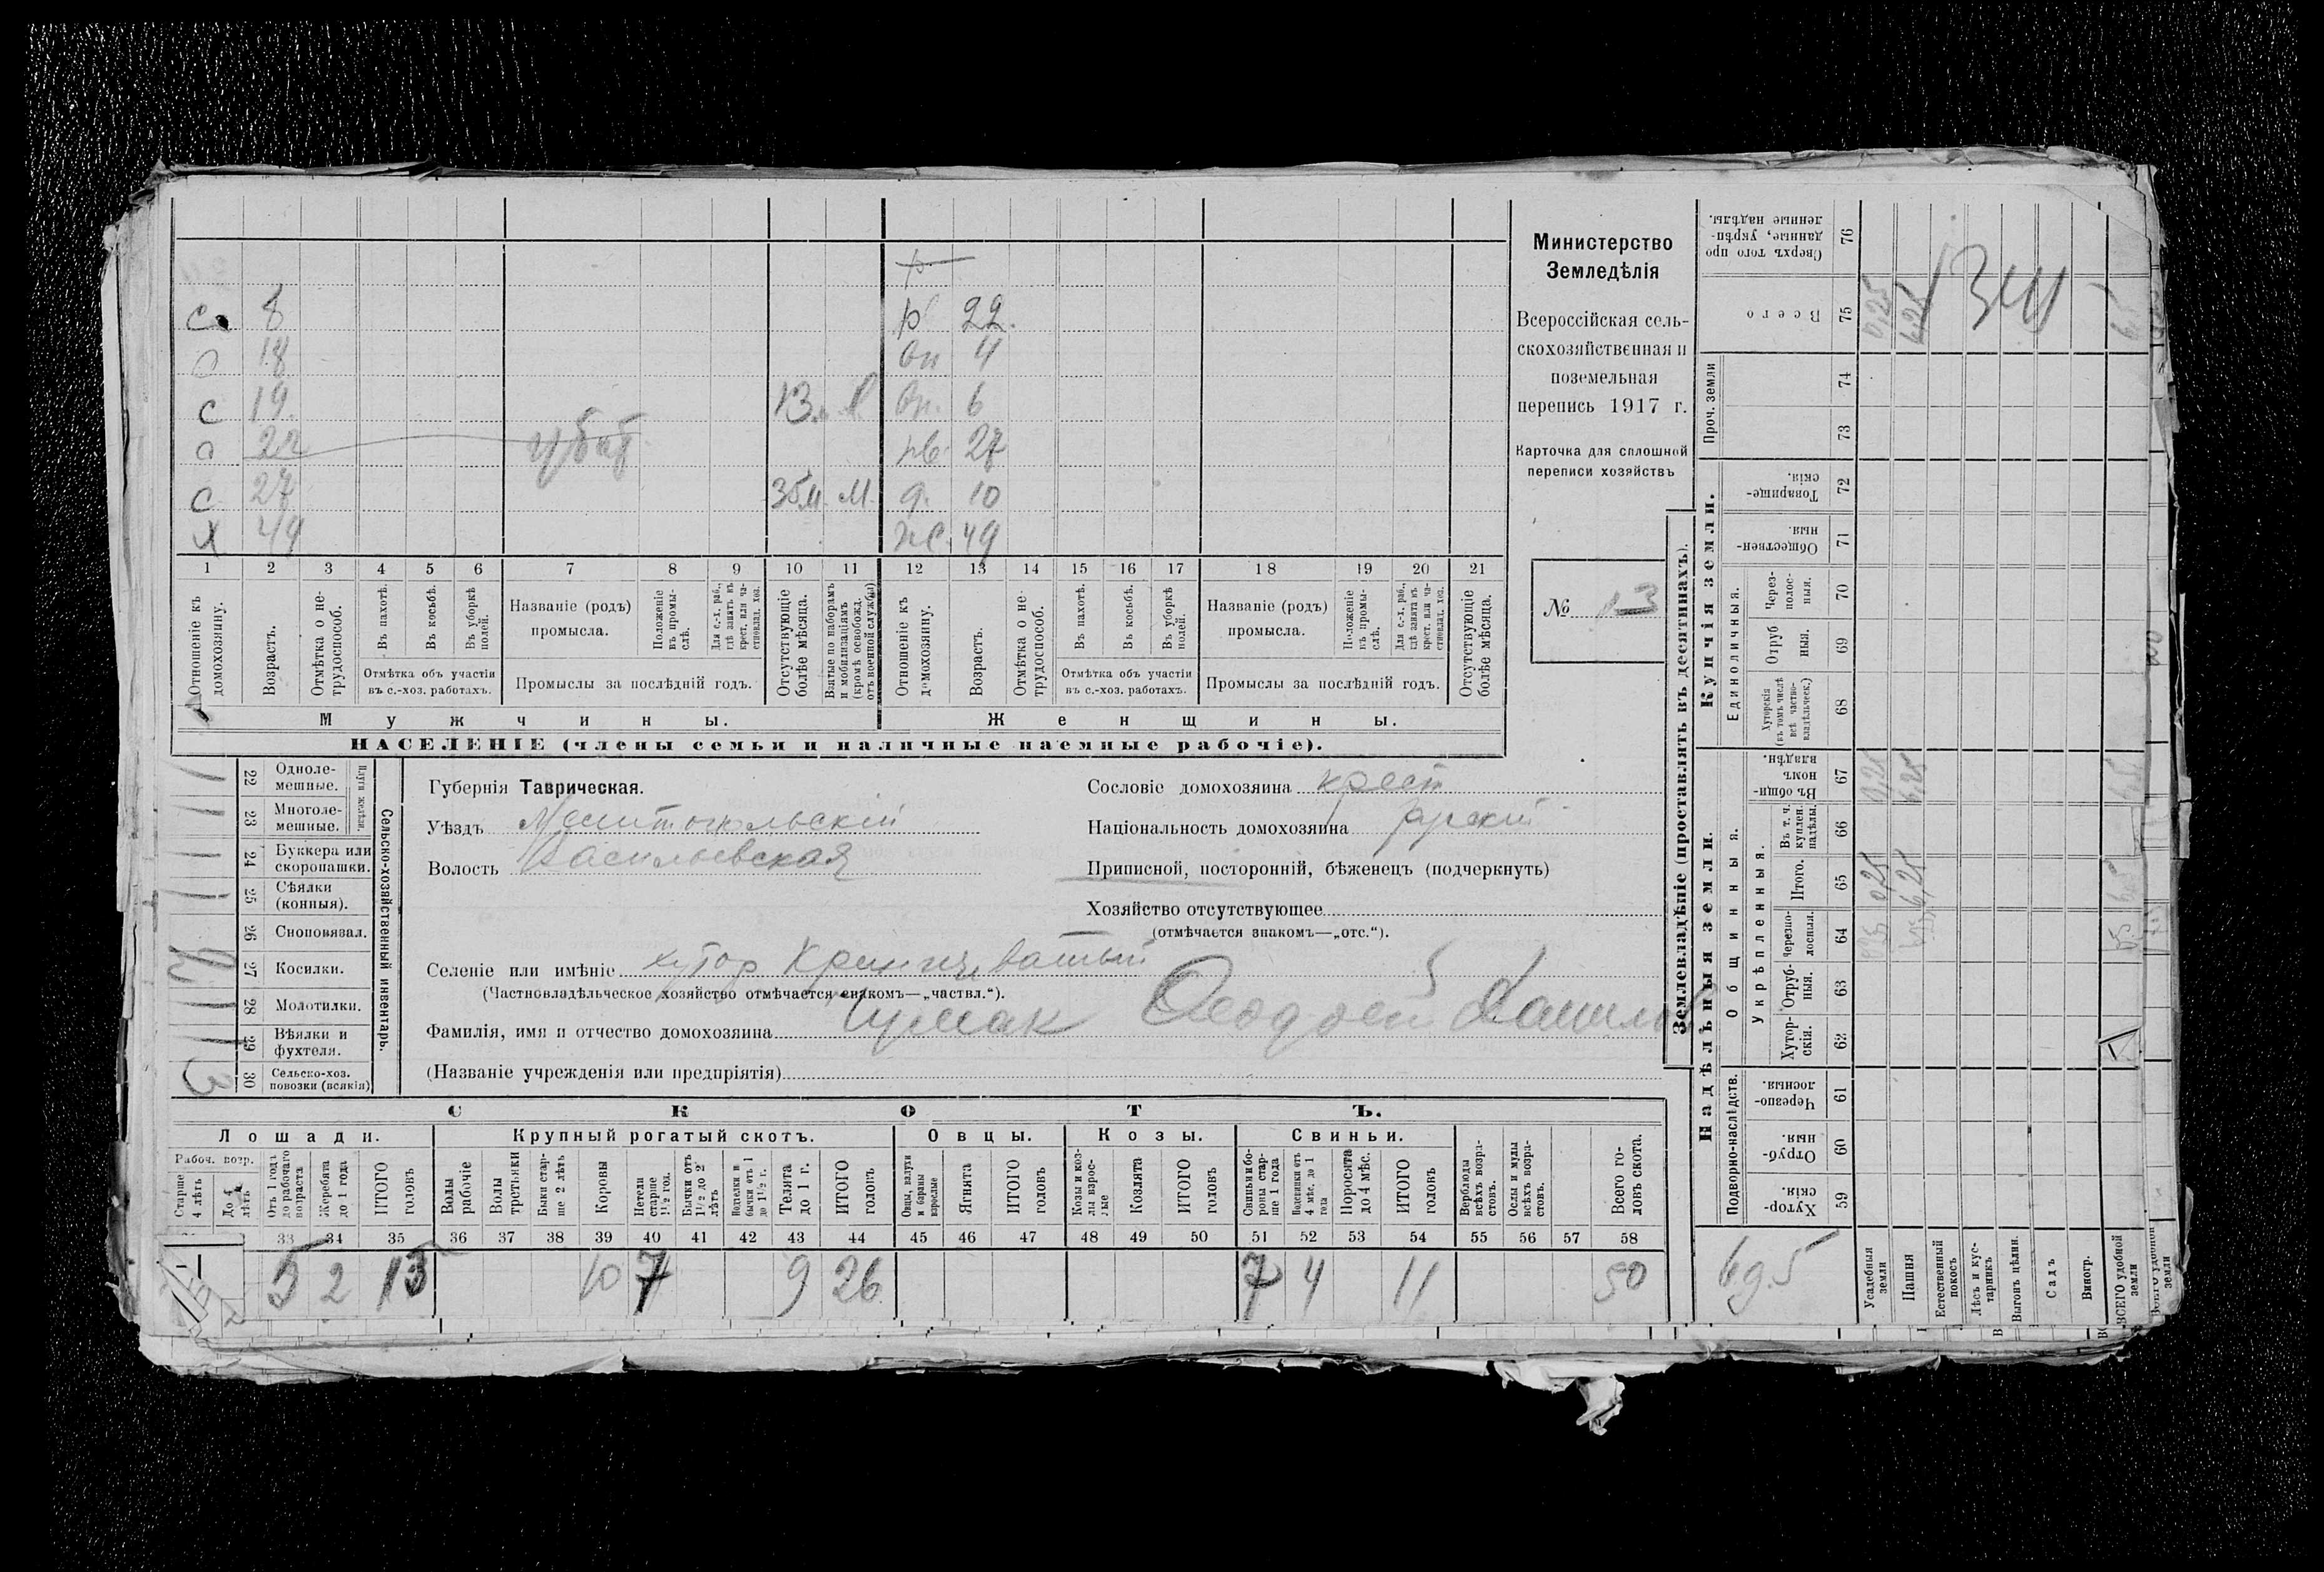 Министерство
Земледѣлія
Всероссійская сель-
скохозяйственная и
поземельная
перепись 1917 г.
Карточка для сплошной
переписи хозяйствъ
№ 13
с 8
18
с 19 13
22 убит
с 27 М
х 49
р 22
вн 4
вн. 6
нв. 27
д. 10
ж. 49
1 2 3 4 5 6 7 8 9 10 11 12 13 14 15 16 17 18 19 20 21
Отношеніе къ домохозяину.
Возрастъ.
Отмѣтка о не-трудоспособ.
Въ пахотѣ.
Въ косьбѣ.
Въ уборкѣ полей.
Отмѣтка объ участіи
въ с.-хоз. работахъ.
Названіе (родъ)
промысла.
Положеніе въ промы-слѣ.
Для с.-х. раб., гдѣ занятъ въ крест. или ча-стновлад. хоз.
Промыслы за послѣдній годъ.
Отсутствующіе болѣе мѣсяца.
Взятые по наборамъ и мобилизаціямъ (кромѣ освобожд. отъ военной службы)
Отношеніе къ домохозяину.
Возрастъ.
Отмѣтка о не-трудоспособ.
Въ пахотѣ.
Въ косьбѣ.
Въ уборкѣ полей.
Отмѣтка объ участіи
въ с.-хоз. работахъ.
Названіе (родъ)
промысла.
Положеніе въ промы-слѣ.
Для с.-х. раб., гдѣ занята въ крест. или ча-стновлад. хоз.
Промыслы за послѣдній годъ.
Отсутствующіе болѣе мѣсяца.
Мужчины.
Женщины.
НАСЕЛЕНІЕ (члены семьи и наличные наемные рабочіе).
22 Одноле-мешные.
23 Многоле-мешные.
Плуги желѣзн.
24 Буккера или скоропашки.
25 Сѣялки (конныя).
26 Сноповязал.
27 Косилки.
28 Молотилки.
29 Вѣялки и фухтеля.
30 Сельско-хоз. повозки (всякія) 3
Сельско-хозяйственный инвентарь.
Губернія Таврическая.
Уѣздъ Мелитопольскій
Волость Васильевская
Сословіе домохозяина крест
Національность домохозяина русскій
Приписной, посторонній, бѣженецъ (подчеркнуть)
Хозяйство отсутствующее
(отмѣчается знакомъ—„отс.“).
Селеніе или имѣніе хутор Криничеватый
(Частновладѣльческое хозяйство отмѣчается знакомъ—„частвл.“).
Фамилія, имя и отчество домохозяина Чумак
(Названіе учрежденія или предпріятія)
СКОТЪ.
Лошади.
Крупный рогатый скотъ.
Овцы.
Козы.
Свиньи.
Рабоч. возр.
Старше 4 лѣтъ
До 4 лѣтъ
Отъ 1 года до рабочаго возраста
Жеребята до 1 года
ИТОГО головъ
Волы рабочіе
Волы третьяки
Быки стар-ше 2 лѣтъ
Коровы
Нетели старше 1½ год.
Бычки отъ 1½ до 2 лѣтъ
Подтелки и бычки отъ 1 до 1½ г.
Телята до 1 г.
ИТОГО головъ
Овцы, валухи и бараны взрослые
Ягнята
ИТОГО головъ
Козы и коз-лы взрос-лые
Козлята
ИТОГО головъ
Свиньи и бо-ровы стар-ше 1 года
Подсвинки отъ 4 мѣс. до 1 года
Поросята до 4 мѣс.
ИТОГО головъ
Верблюды всѣхъ возра-стовъ.
Ослы и мулы всѣхъ возра-стовъ.
Всего го-ловъ скота.
33 34 35 36 37 38 39 40 41 42 43 44 45 46 47 48 49 50 51 52 53 54 55 56 57 58
5 2 13 10 7 9 26 7 4 11 50
Землевладѣніе (проставлять въ десятинахъ).
Купчія земли.
Надѣльныя земли.
Сверхъ того про-данные, укрѣп-ленные надѣлы. 76
Всего 75
Проч. земли
74
73
Товарище-скія. 72
Обществен-ныя. 71
Единоличныя.
Через-полос-ныя. 70
Отруб-ныя. 69
Хуторскія (въ томъ числѣ всѣ частно-владѣльческ.) 68
Общинныя.
Въ общи-номъ владѣн. 67
Укрѣпленныя.
Въ т. ч. куплен. надѣлы. 66
Итого. 65
Черезпо-лосныя. 64
Отруб-ныя. 63
Хутор-скія. 62
Подворно-наслѣдств.
Черезпо-лосныя. 61
Отруб-ныя. 60
Хутор-скія. 59
Усадебныя земли
Пашня
Естественный покосъ
Лѣсъ и кус-тарникъ
Выгонъ цѣлин.
Садъ
Виногр.
ВСЕГО удобной земли
0,25
6,25
341